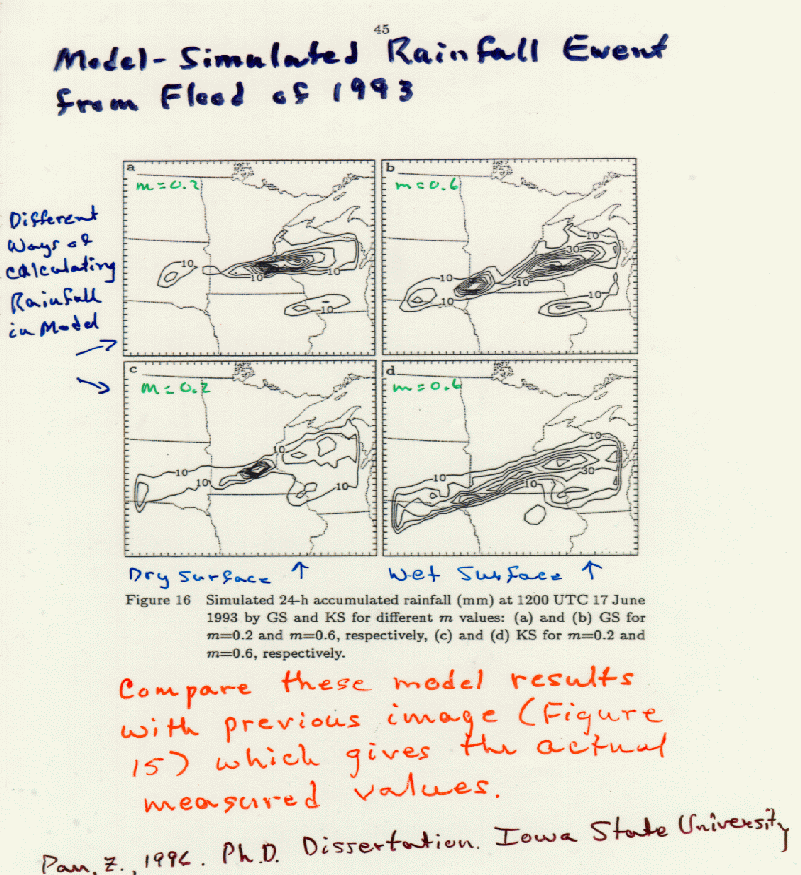 45
Model-Simulated Rainfall Event
from Flood of 1993
Different
Ways of
Calculating
Rainfall
in Model
a
m=0.2
10
10
10
10
b
m=0.6
10
30
10
10
10
10
c
m=0.2
10
10
10
10
d
m=0.6
10
10
30
10
Dry Surface ↑
Wet Surface ↑
Figure 16 Simulated 24-h accumulated rainfall (mm) at 1200 UTC 17 June
1993 by GS and KS for different m values: (a) and (b) GS for
m=0.2 and m=0.6, respectively, (c) and (d) KS for m=0.2 and
m=0.6, respectively.
Compare these model results
with previous image (Figure
15) which gives the actual
measured values.
Pan, Z., 1996. Ph.D. Dissertation. Iowa State University